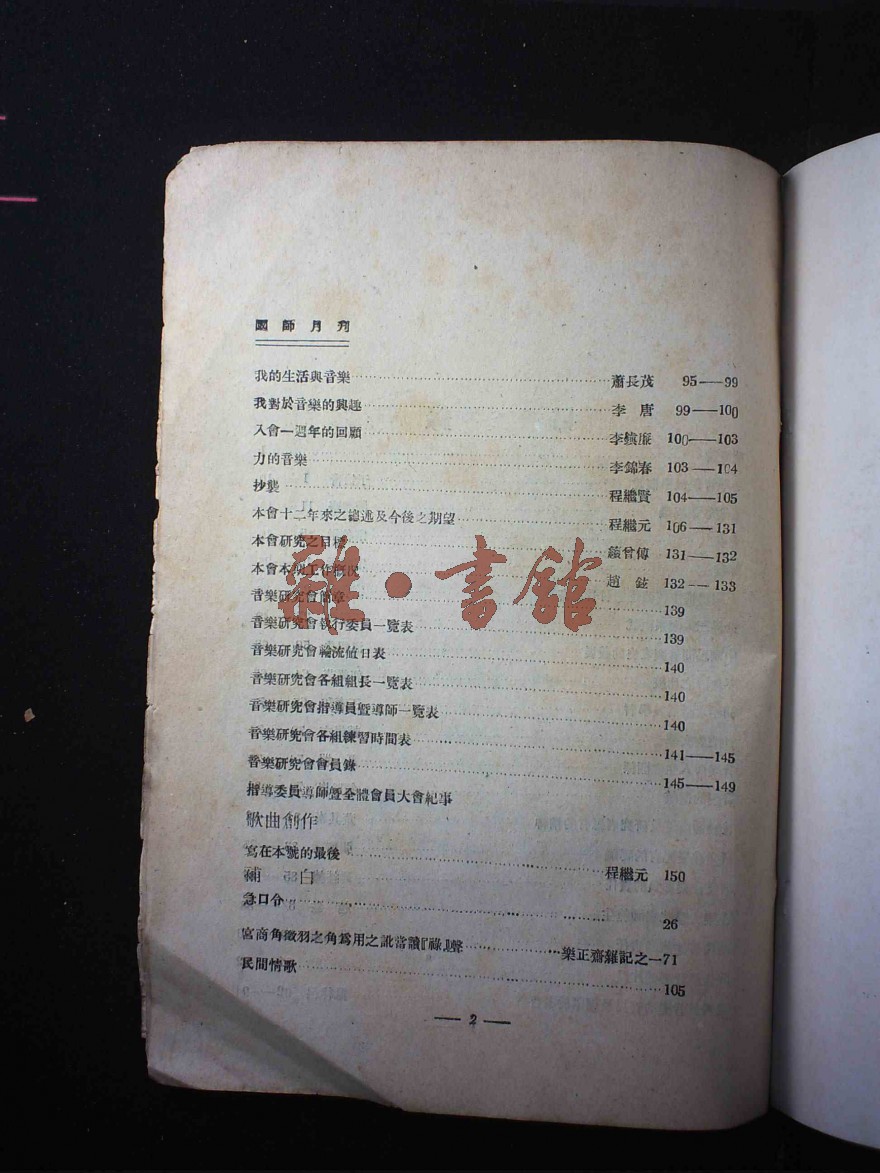 國師月刊
我的生活與音樂 蕭長茂 95——99
我對於音樂的興趣 李唐 99——100
入會一週年的回顧 李 100——103
力的音樂 李錦春 103——104
抄襲 程繼賢 104——105
本會十二年來之總述及今後之期望 程繼元 106——131
本會研究之目標 曾傳 131——132
本會本 工作概況 趙 132——133
音樂研究會簡章 139
音樂研究會執行委員一覽表 139
音樂研究會輪流值日表 140
音樂研究會各組組長一覽表 140
音樂研究會指導員暨導師一覽表 140
音樂研究會各組練習時間表 141——145
音樂研究會會員錄 145——149
指導委員導師暨全體會員大會紀事
歌曲創作
寫在本號的最後 程繼元 150
補白
急口令 26
宮商角徵羽之角爲用之訛當讀『祿』聲 樂正齋雜記之一71
民間情歌 105
—2—
雜·書館